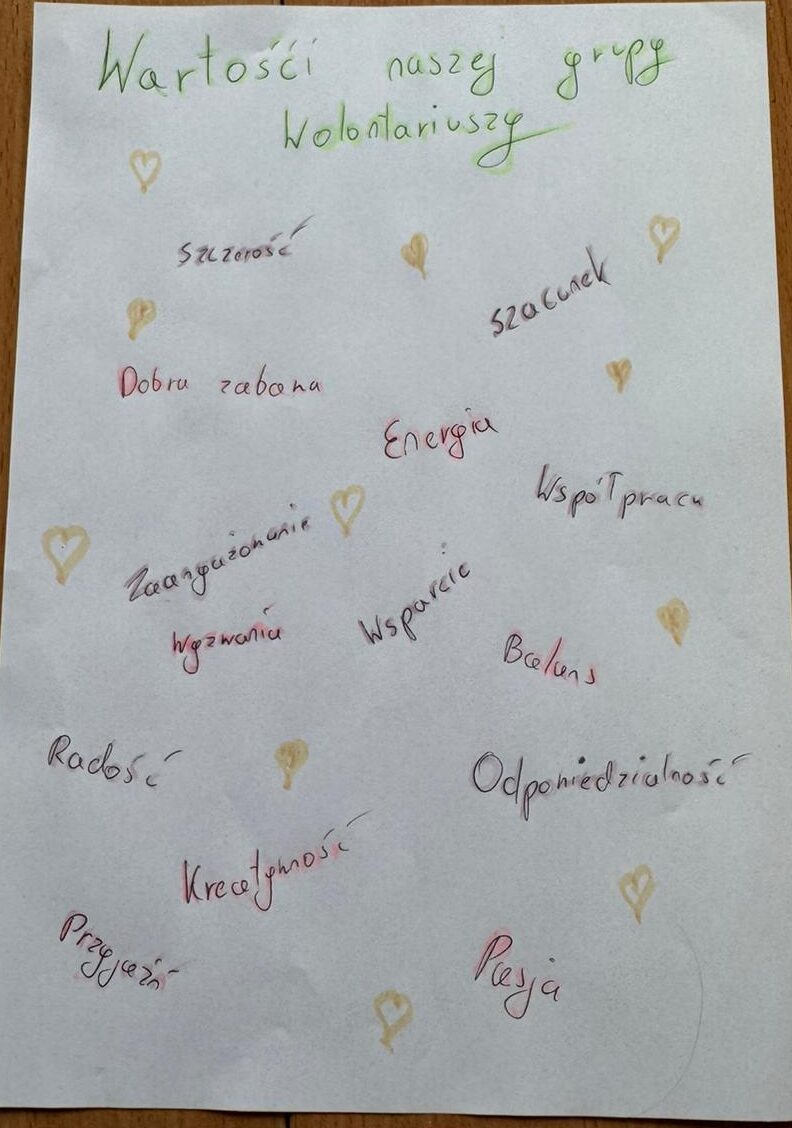 Wartośći naszej grupy
Wolontariuszy
Szczerość
Szacunek
Dobra zabawa
Energia
Współpraca
Zaangażowanie
Wsparcie
Wyzwania
Balans
Radość
Odpowiedzialność
Kreatywność
Przyjaźń
Pasja